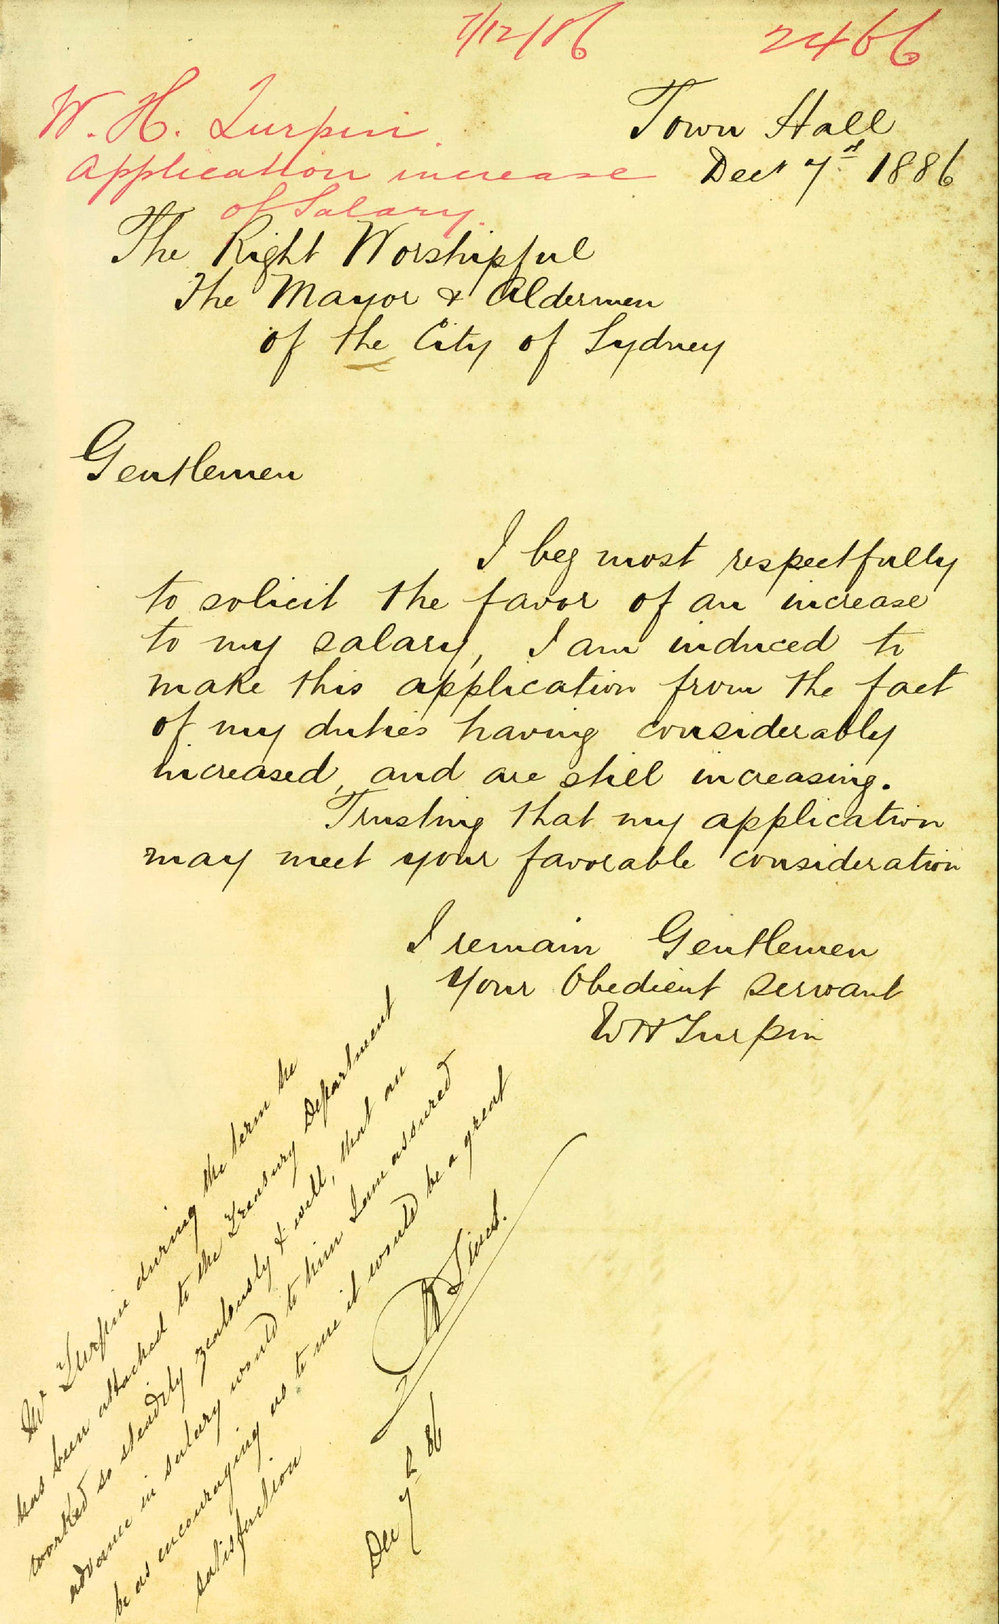 7/12/86 2466
W. H. Turpin
Application increase
of Salary.
Town Hall
Dec 7th 1886
The Right Worshipful
The Mayor & Aldermen
of the City of Sydney
Gentlemen
I beg most respectfully
to solicit the favor of an increase
to my salary, I am induced to
make this application from the fact
of my duties having considerably
increased, and are still increasing.
Trusting that my application
may meet your favorable consideration
I remain Gentlemen
Your Obedient Servant
WHTurpin
Mr Turpin during the term he
has been attached to the Treasury Department
worked so steadily zealously & well, that an
advance in salary would to him I am assured
be as encouraging as to me it would be a great
satisfaction
Dec 7th 86